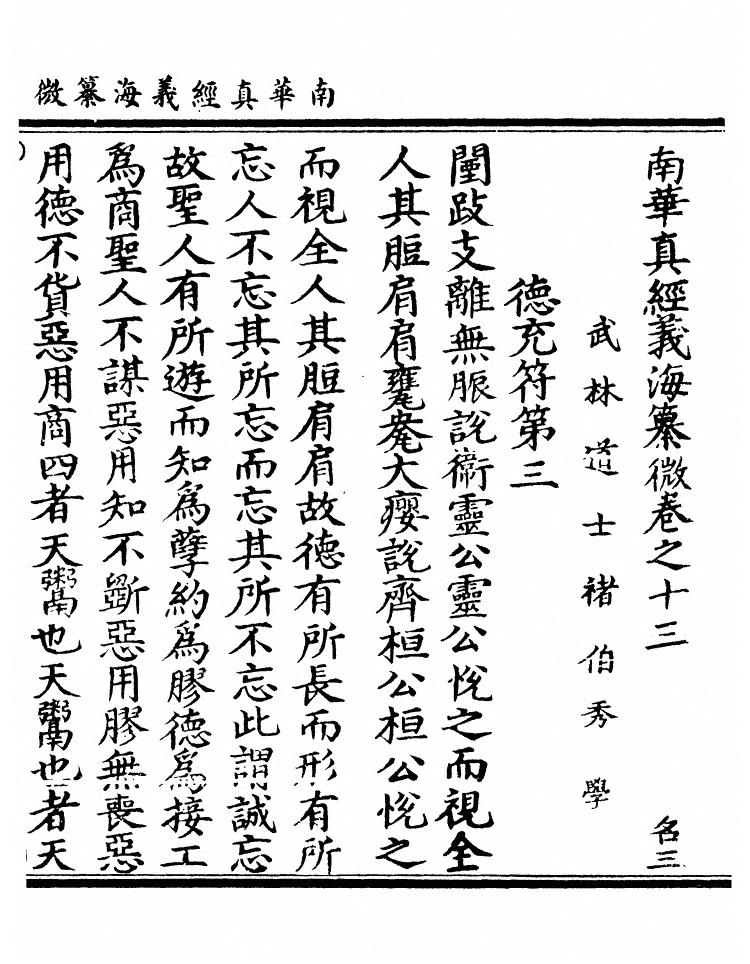 南華真經義海纂微
南華真經義海纂微卷之十三　名三
武林道士褚伯秀學
德充符第三
闉跂支離無脤說衛靈公靈公悅之而視全
人其脰肩肩甕㼜大癭說齊桓公桓公悅之
而視全人其脰肩肩故德有所長而形有所
忘人不忘其所忘而忘其所不忘此謂誠忘
故聖人有所遊而知為孽約為膠德為接工
為商聖人不謀惡用知不斲惡用膠無喪惡
用德不貨惡用商四者天鬻也天鬻也者天